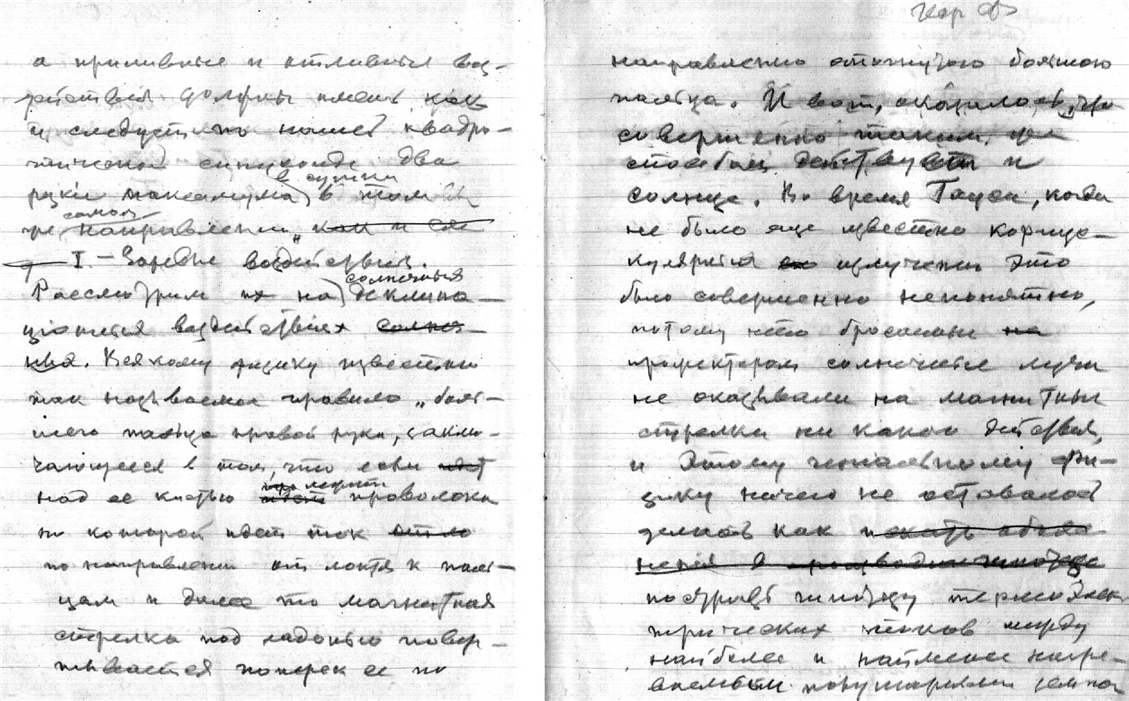 а приливные и отливные воз-
действия должны иметь как
и следует по нашей квадра-
тической синусоиде два
в сутки
руки максимума в том же
самом
же направлении,, как и
I. – Зоревые воздействия.
солнечных
Рассмотрим их на деклина-
ционных воздействиях солнеч-
ния. Всякому физику известно
так называемое правило „боль-
шого пальца правой руки, заклю-
чающееся в том, что если идет
лежит
над ее кистью идет проволока
по которой идет ток
по направлению от локтя к паль-
цам и далее то магнитная
стрелка под ладонью повер-
тывается поперек ее по
направлению оттянутого большого
пальца. И вот, оказалось, что
совершенно таким же
способом действует и
солнце. Во время Гаусса, когда
не было еще известно корпус-
кулярное излучение это
было совершенно непонятно,
потому что бросаемые на
прожектором солнечные лучи
не оказывали на магнитные
стрелки никакого действия,
и этому гениальному физи-
ку ничего не оставалось
делать как искать объяс-
нения в
построить гипотезу термоэлек-
трических токов между
наиболее и наименее нагре-
ваемыми полушариями земного